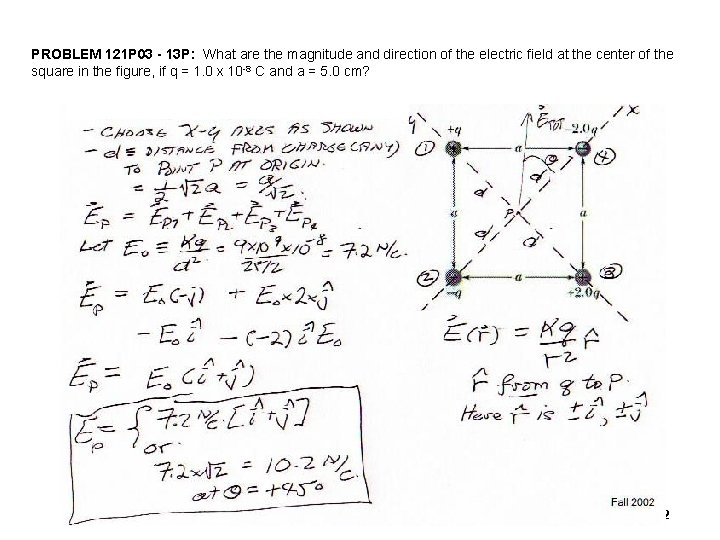 PROBLEM 121P03 - 13P: What are the magnitude and direction of the electric field at the center of the
square in the figure, if q = 1.0 x 10⁻⁸ C and a = 5.0 cm?
- CHOOSE X-Y AXES AS SHOWN
- d ≡ DISTANCE FROM CHARGE (ANY)
TO POINT P AT ORIGIN.
= 1/2 √2 a = a/√2.
E⃗p = E⃗p1 + E⃗p2 + E⃗p3 + E⃗p4
Let E₀ ≡ Kq/d² = 9×10⁹×10⁻⁸ = 7.2 N/C.
E⃗p = E₀(-ĵ) + E₀×2×ĵ
- E₀ î - (-2) î E₀
E⃗p = E₀(î+ĵ)
E⃗p = { 7.2 N/C [î+ĵ]
or
7.2×√2 = 10.2 N/C.
at θ = +45°
y +q E⃗TOT -2.0q x
① a θ ④
d d
a P a
d d
② a ③
-q +2.0q
E⃗(r) = Kq/r² r̂
r̂ from q to P.
Here r̂ is ±î, ±ĵ
Fall 2002
2